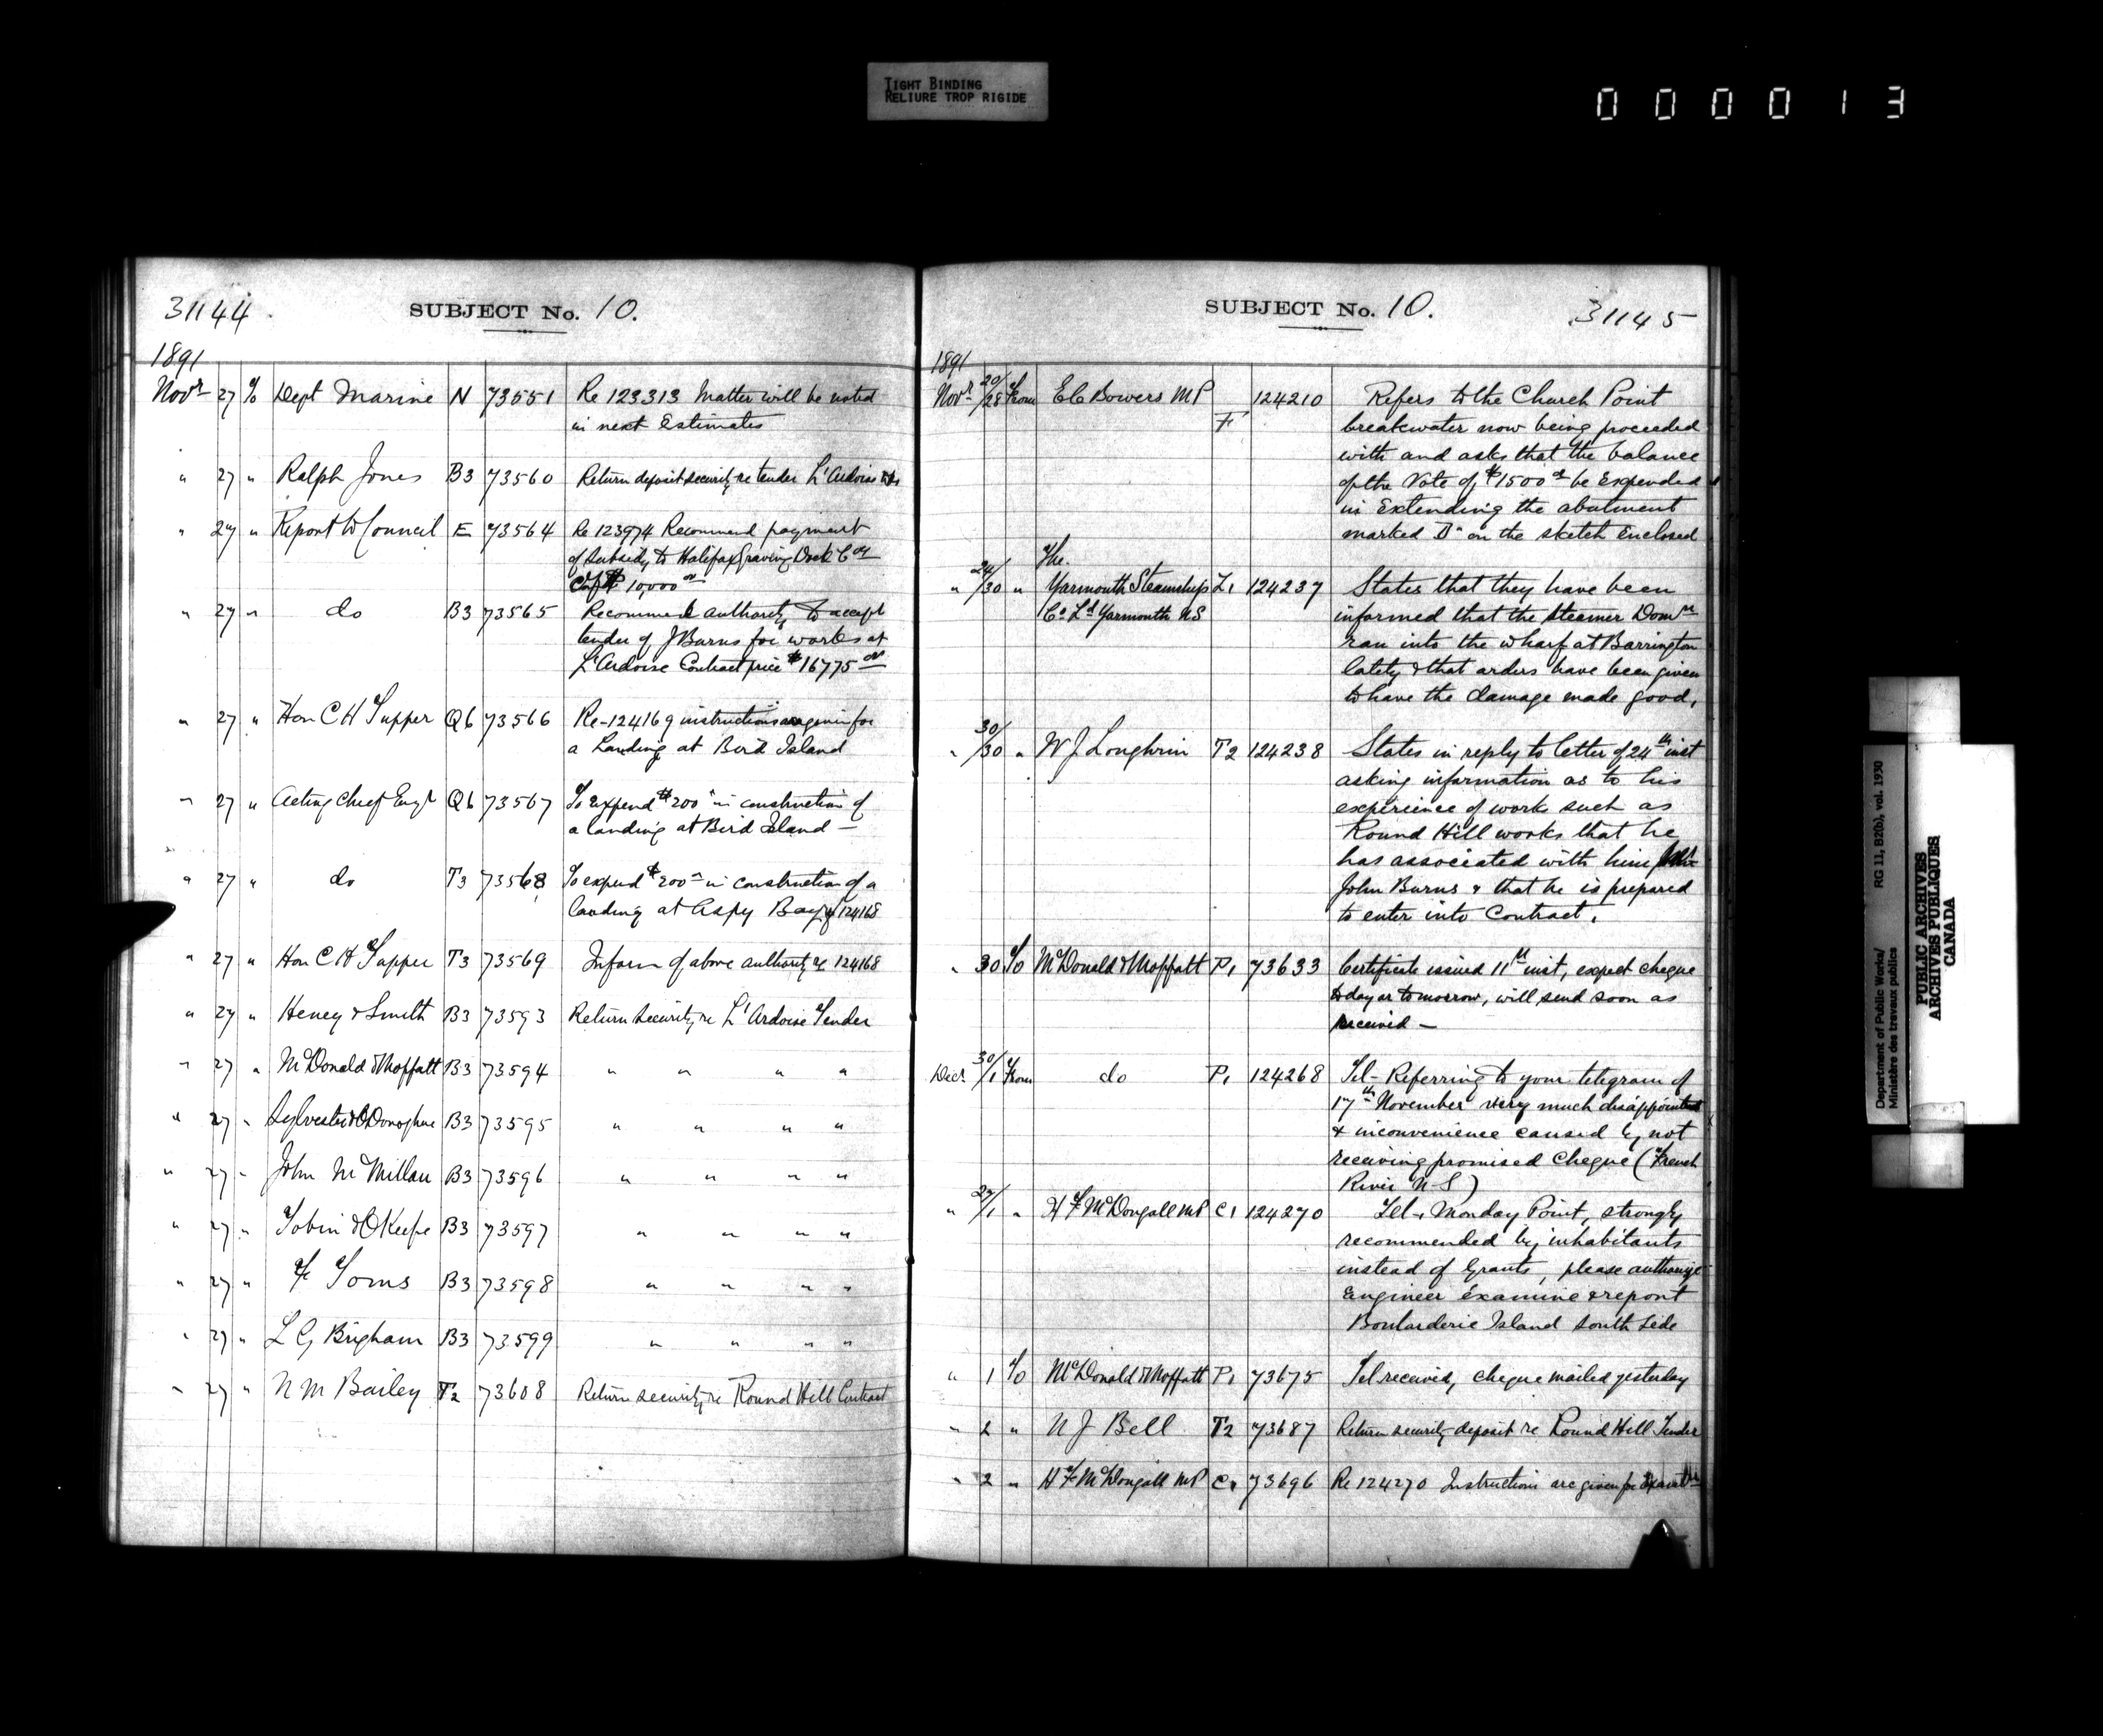 TIGHT BINDING
RELIURE TROP RIGIDE
0 0 0 0 1 3
31144
SUBJECT No. 10.
1891
Novr 27 To Dept Marine N 73551 Re 123313 Matter will be noted
in next Estimates
" 27 " Ralph Jones B3 73560 Return deposit security re tender L'Ardoise
" 27 " Report to Council E 73564 Re 123974 Recommend payment
of Subsidy to Halifax Graving Dock Coy
of $10,000 00
" 27 " do B3 73565 Recommend authority to accept
tender of J Burns for works at
L'Ardoise Contract price $16775 00
" 27 " Hon C H Tupper Q6 73566 Re-124169 instructions are given for
a Landing at Bird Island
" 27 " Acting Chief Engr Q6 73567 To Expend $200 " in construction of
a landing at Bird Island —
" 27 " do T3 73568 To expend $200 " in construction of a
landing at Aspy Bay re 124168
" 27 " Hon C H Tupper T3 73569 Inform of above authority re 124168
" 27 " Heney & Smith B3 73593 Return Security re L'Ardoise Tender
" 27 " McDonald & Moffatt B3 73594 " " " "
" 27 " Sylvester & O'Donoghue B3 73595 " " " "
" 27 " John McMillan B3 73596 " " " "
" 27 " Tobin & O'Keefe B3 73597 " " " "
" 27 " F Toms B3 73598 " " " "
" 27 " L G Brigham B3 73599 " " " "
" 27 " N M Bailey T2 73608 Return security re Round Hill Contract
SUBJECT No. 10.
31145
1891
Novr 20/28 From E C Bowers MP F 124210 Refers to the Church Point
breakwater now being proceeded
with and asks that the balance
of the Vote of $1500 00 be Expended
in Extending the abutment
marked D" on the sketch Enclosed
The
" 24/30 " Yarmouth Steamship L1 124237 States that they have been
Co Ld Yarmouth NS informed that the Steamer Domn
ran into the wharf at Barrington
lately & that orders have been given
to have the damage made good,
" 30/30 " W J Loughrin T2 124238 States in reply to letter of 24th inst
asking information as to his
experience of works such as
Round Hill works that he
has associated with him
John Burns & that he is prepared
to enter into Contract.
" 30 To McDonald & Moffatt P1 73633 Certificate issued 11th inst, expect cheque
today or tomorrow, will send soon as
received —
Decr 30/1 From do P1 124268 Tel- Referring to your telegram of
17th November very much disappointed
& inconvenience caused by not
receiving promised cheque (French
River N-S)
" 27/1 " H F McDougall MP C1 124270 Tel-, Monday Point, strongly
recommended by inhabitants
instead of Grants, please authorize
Engineer examine & report
Boularderie Island South Side
" 1 To McDonald & Moffatt P1 73675 Tel received, cheque mailed yesterday
" 2 " N J Bell T2 73687 Return security deposit re Round Hill Tender
" 2 " H F McDougall MP C1 73696 Re 124270 Instructions are given for
Department of Public Works/ RG 11, B2(b), vol. 1930
Ministère des travaux publics
PUBLIC ARCHIVES
ARCHIVES PUBLIQUES
CANADA